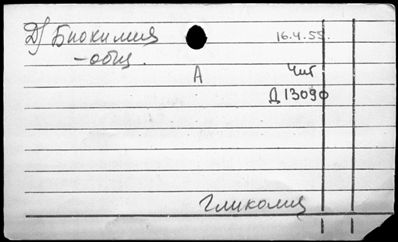 Д/ Биохимия 16.4.55.
-общ.
А Чит
Д 13090
Гликолиз